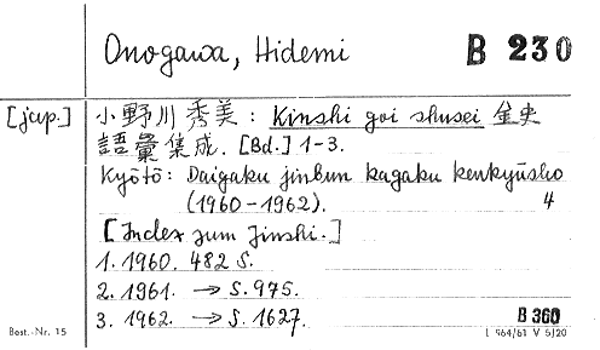 Onogawa, Hidemi B 230
[jap.] 小野川秀美: Kinshi goi shusei 金史
語彙集成. [Bd.] 1-3.
Kyōtō: Daigaku jinbun kagaku kenkyūsho
(1960-1962). 4
[Index zum Jinshi.]
1. 1960. 482 S.
2. 1961. → S. 975.
3. 1962. → S. 1627. B 360
Best.-Nr. 15 L 964/61 V 5/20